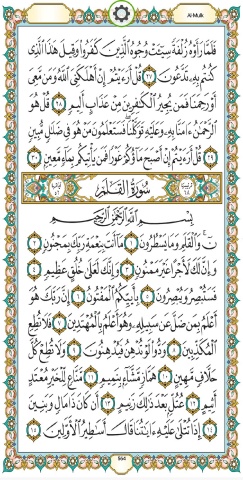 Al-Mulk
فَلَمَّا رَأَوْهُ زُلْفَةً سِيٓـَٔتْ وُجُوهُ ٱلَّذِينَ كَفَرُوا۟ وَقِيلَ هَٰذَا ٱلَّذِى
كُنتُم بِهِۦ تَدَّعُونَ ٢٧ قُلْ أَرَءَيْتُمْ إِنْ أَهْلَكَنِىَ ٱللَّهُ وَمَن مَّعِىَ
أَوْ رَحِمَنَا فَمَن يُجِيرُ ٱلْكَٰفِرِينَ مِنْ عَذَابٍ أَلِيمٍ ٢٨ قُلْ هُوَ
ٱلرَّحْمَٰنُ ءَامَنَّا بِهِۦ وَعَلَيْهِ تَوَكَّلْنَا فَسَتَعْلَمُونَ مَنْ هُوَ فِى ضَلَٰلٍ مُّبِينٍ
٢٩ قُلْ أَرَءَيْتُمْ إِنْ أَصْبَحَ مَآؤُكُمْ غَوْرًا فَمَن يَأْتِيكُم بِمَآءٍ مَّعِينٍۭ ٣٠
سُورَةُ ٱلْقَلَمِ
بِسْمِ ٱللَّهِ ٱلرَّحْمَٰنِ ٱلرَّحِيمِ
نٓ ۚ وَٱلْقَلَمِ وَمَا يَسْطُرُونَ ١ مَآ أَنتَ بِنِعْمَةِ رَبِّكَ بِمَجْنُونٍ ٢
وَإِنَّ لَكَ لَأَجْرًا غَيْرَ مَمْنُونٍ ٣ وَإِنَّكَ لَعَلَىٰ خُلُقٍ عَظِيمٍ ٤
فَسَتُبْصِرُ وَيُبْصِرُونَ ٥ بِأَييِّكُمُ ٱلْمَفْتُونُ ٦ إِنَّ رَبَّكَ هُوَ
أَعْلَمُ بِمَن ضَلَّ عَن سَبِيلِهِۦ وَهُوَ أَعْلَمُ بِٱلْمُهْتَدِينَ ٧ فَلَا تُطِعِ
ٱلْمُكَذِّبِينَ ٨ وَدُّوا۟ لَوْ تُدْهِنُ فَيُدْهِنُونَ ٩ وَلَا تُطِعْ كُلَّ
حَلَّافٍ مَّهِينٍ ١٠ هَمَّازٍ مَّشَّآءٍۭ بِنَمِيمٍ ١١ مَّنَّاعٍ لِّلْخَيْرِ مُعْتَدٍ
أَثِيمٍ ١٢ عُتُلٍّۭ بَعْدَ ذَٰلِكَ زَنِيمٍ ١٣ أَن كَانَ ذَا مَالٍ وَبَنِينَ
١٤ إِذَا تُتْلَىٰ عَلَيْهِ ءَايَٰتُنَا قَالَ أَسَٰطِيرُ ٱلْأَوَّلِينَ ١٥
564